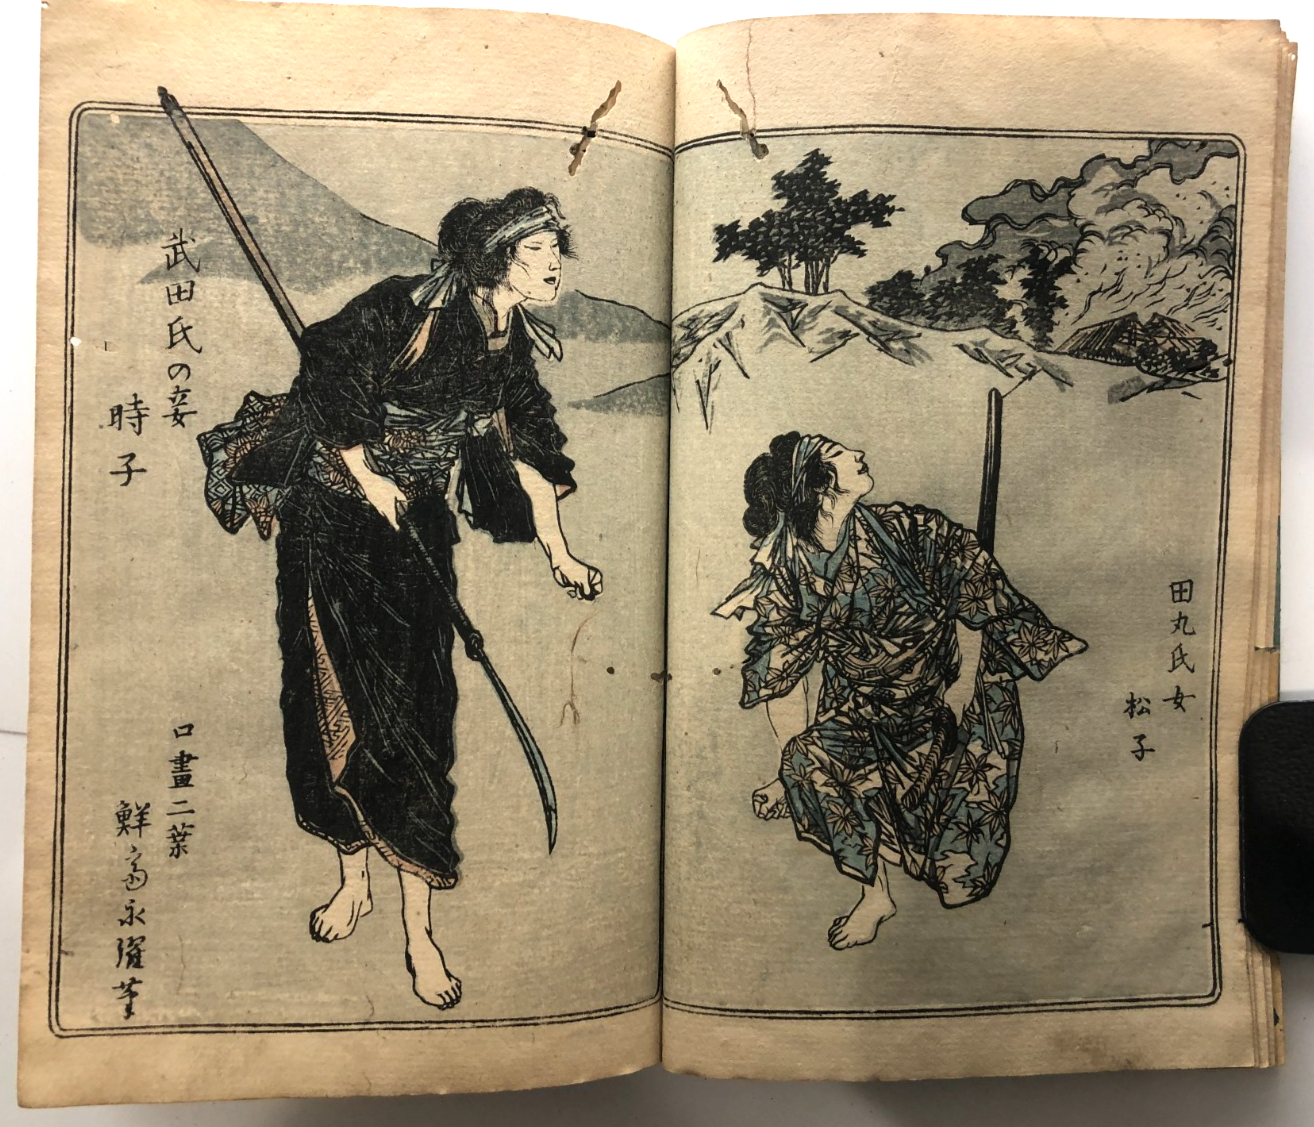 田丸氏女
松子
武田氏の妾
時子
口畫二葉
鮮斎永濯筆